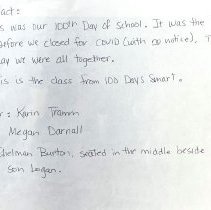 act:
s was our 100th Day of School. It was the
efore we closed for Covid (with no notice),
ay we were all together.
is is the class from 100 Days Smart.
r: Karin Tramm
Megan Darnall
Shelman Burton, seated in the middle beside
son Logan.